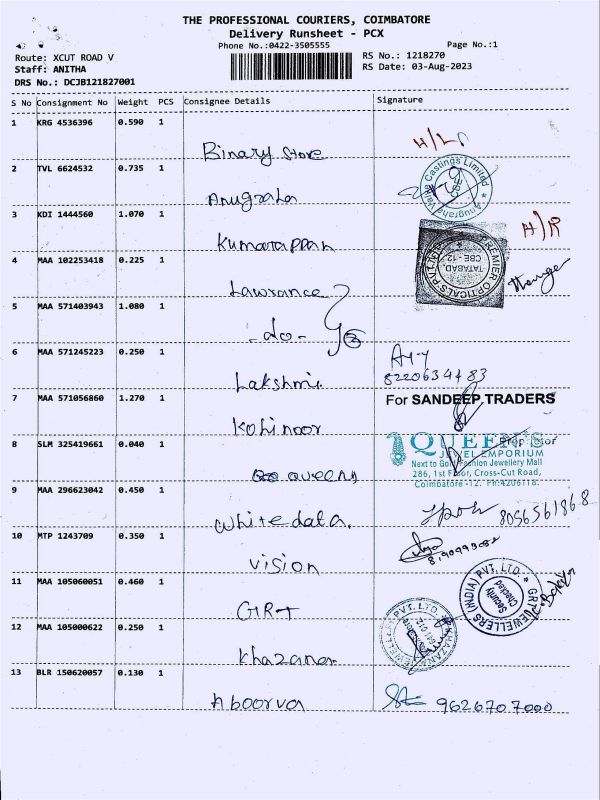 THE PROFESSIONAL COURIERS, COIMBATORE
Delivery Runsheet - PCX
Phone No.:0422-3505555
Page No.:1
Route: XCUT ROAD V
RS No.: 1218270
Staff: ANITHA
RS Date: 03-Aug-2023
DRS No.: DCJB121827001
S No Consignment No Weight PCS Consignee Details Signature
1 KRG 4536396 0.590 1
Binary store
2 TVL 6624532 0.735 1
Anugraha
Anugraha Valve Castings Limited
CBE
3 KDI 1444560 1.070 1
Kumarappan
H/R
4 MAA 102253418 0.225 1
PREMIER OPTICALS PVT. LTD.
TATABAD,
CBE - 12
Lawrance
5 MAA 571403943 1.080 1
-do-
6 MAA 571245223 0.250 1
8220634483
Lakshmi
7 MAA 571056860 1.270 1 For SANDEEP TRADERS
Kohinoor
Proprietor
8 SLM 325419661 0.040 1
QUEEN'S
JEWEL EMPORIUM
Next to Gold Fashion Jewellery Mall
286, 1st Floor, Cross-Cut Road,
Coimbatore -12. Ph:4206118.
queens
9 MAA 296623042 0.450 1
8056561868
white data.
10 MTP 1243709 0.350 1
vision
11 MAA 105060051 0.460 1
GRT JEWELLERS (INDIA) PVT. LTD.
Security
Checked
GRT
12 MAA 105000622 0.250 1
KHAZANA JEWELLERY PVT. LTD.
Khazana
13 BLR 150620057 0.130 1
Aboorva
9626707000